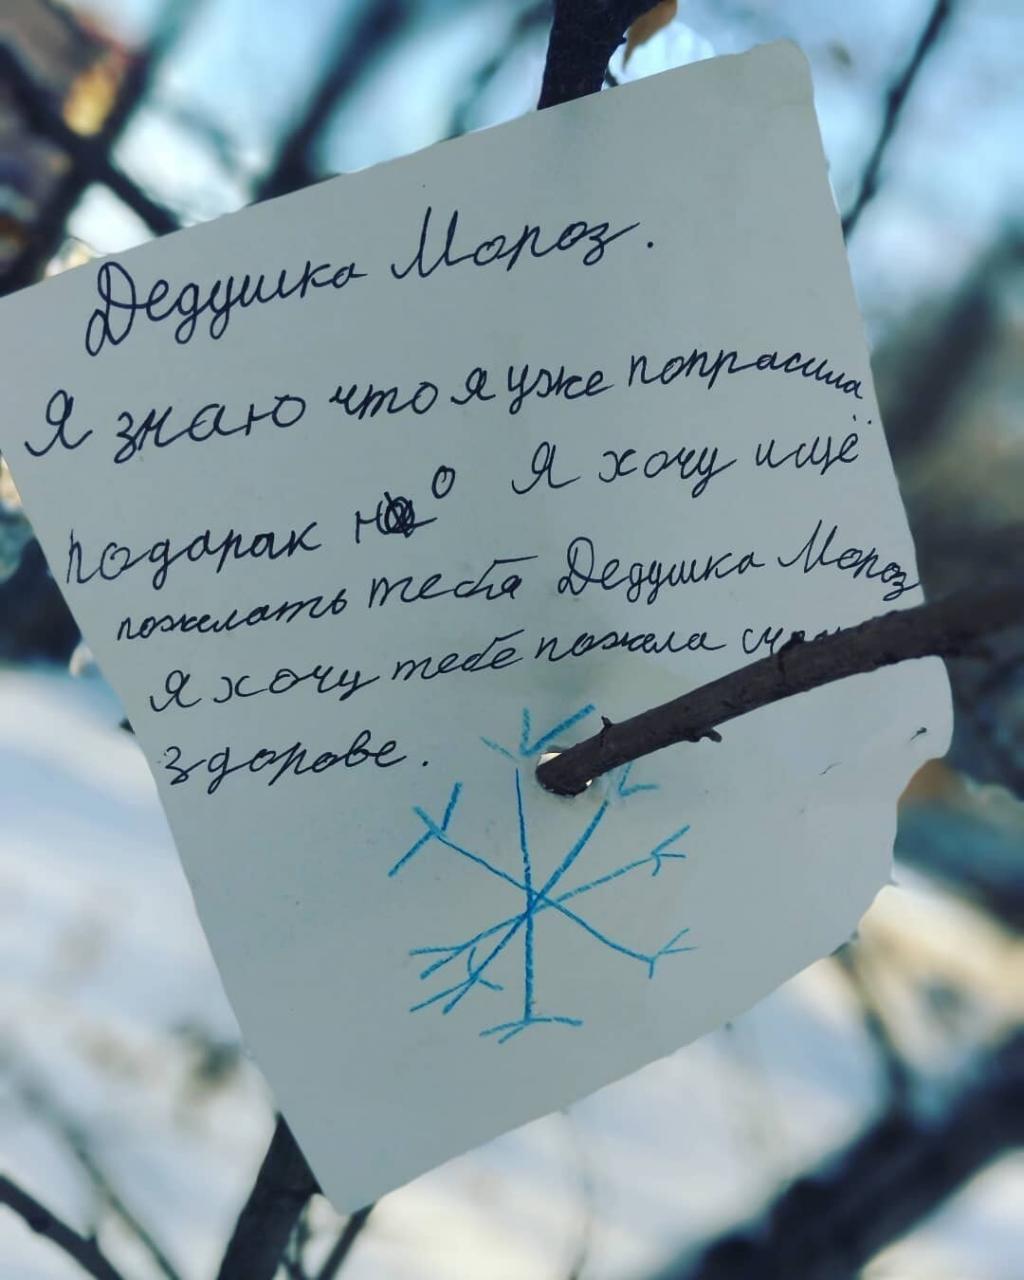 Дедушка Мороз.
Я знаю что я уже попрасила
подарак но Я хочу ищё
пожелать тебя Дедушка Мороз
Я хочу тебе пожела
здорове.